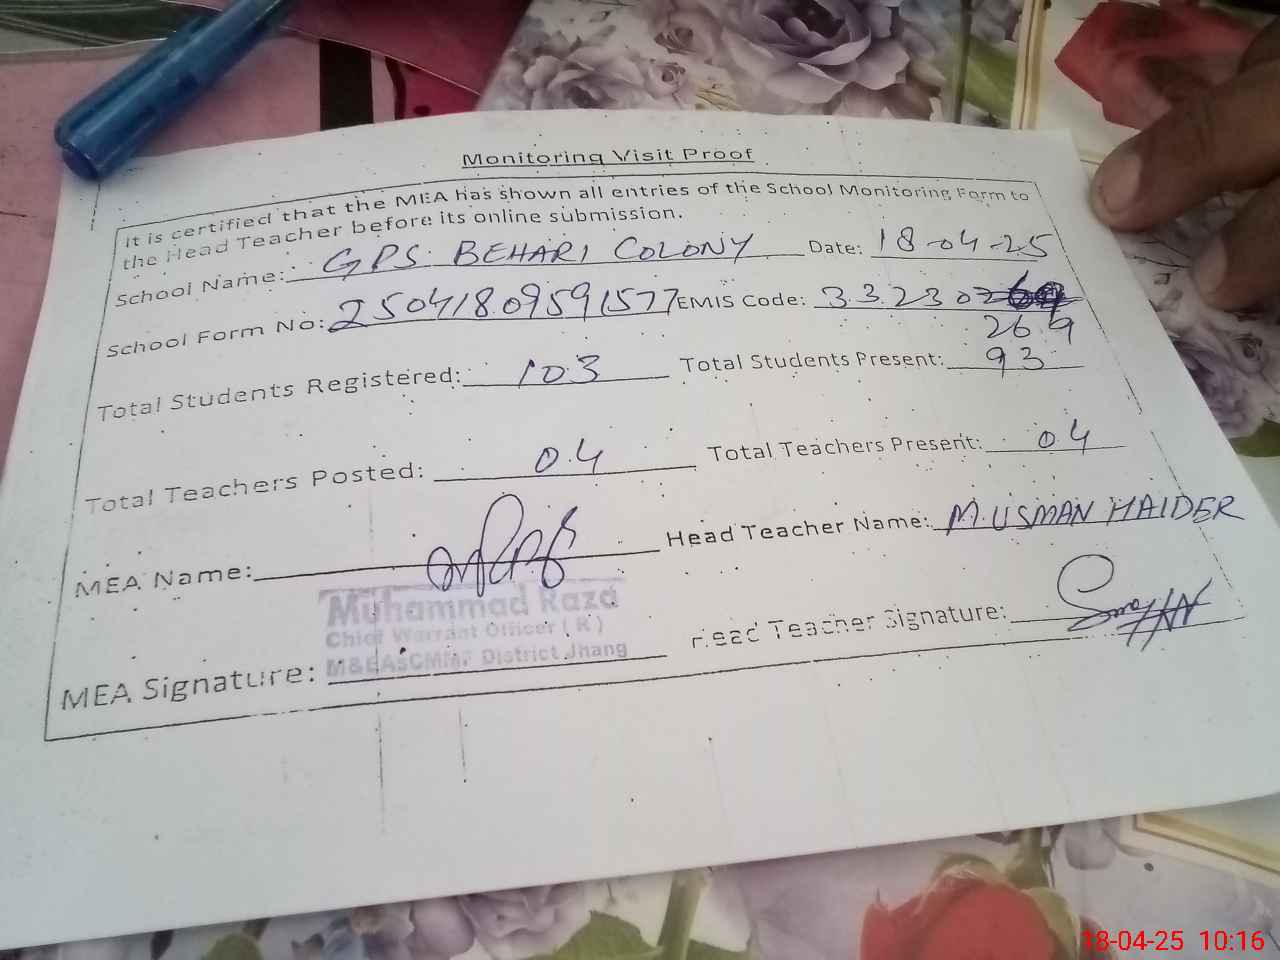 Monitoring Visit Proof
It is certified that the MEA has shown all entries of the School Monitoring Form to
the Head Teacher before its online submission.
School Name: GPS. BEHARI COLONY Date: 18-04-25
School Form No: 25041809591577 EMIS Code: 332302
269
Total Students Registered: 103 Total Students Present: 93
Total Teachers Posted: 04 Total Teachers Present: 04
MEA Name: Head Teacher Name: M. USMAN HAIDER
Muhammad Raza
Chief Warrant Officer ( R )
District Jhang
MEA Signature: Head Teacher Signature:
18-04-25 10:16